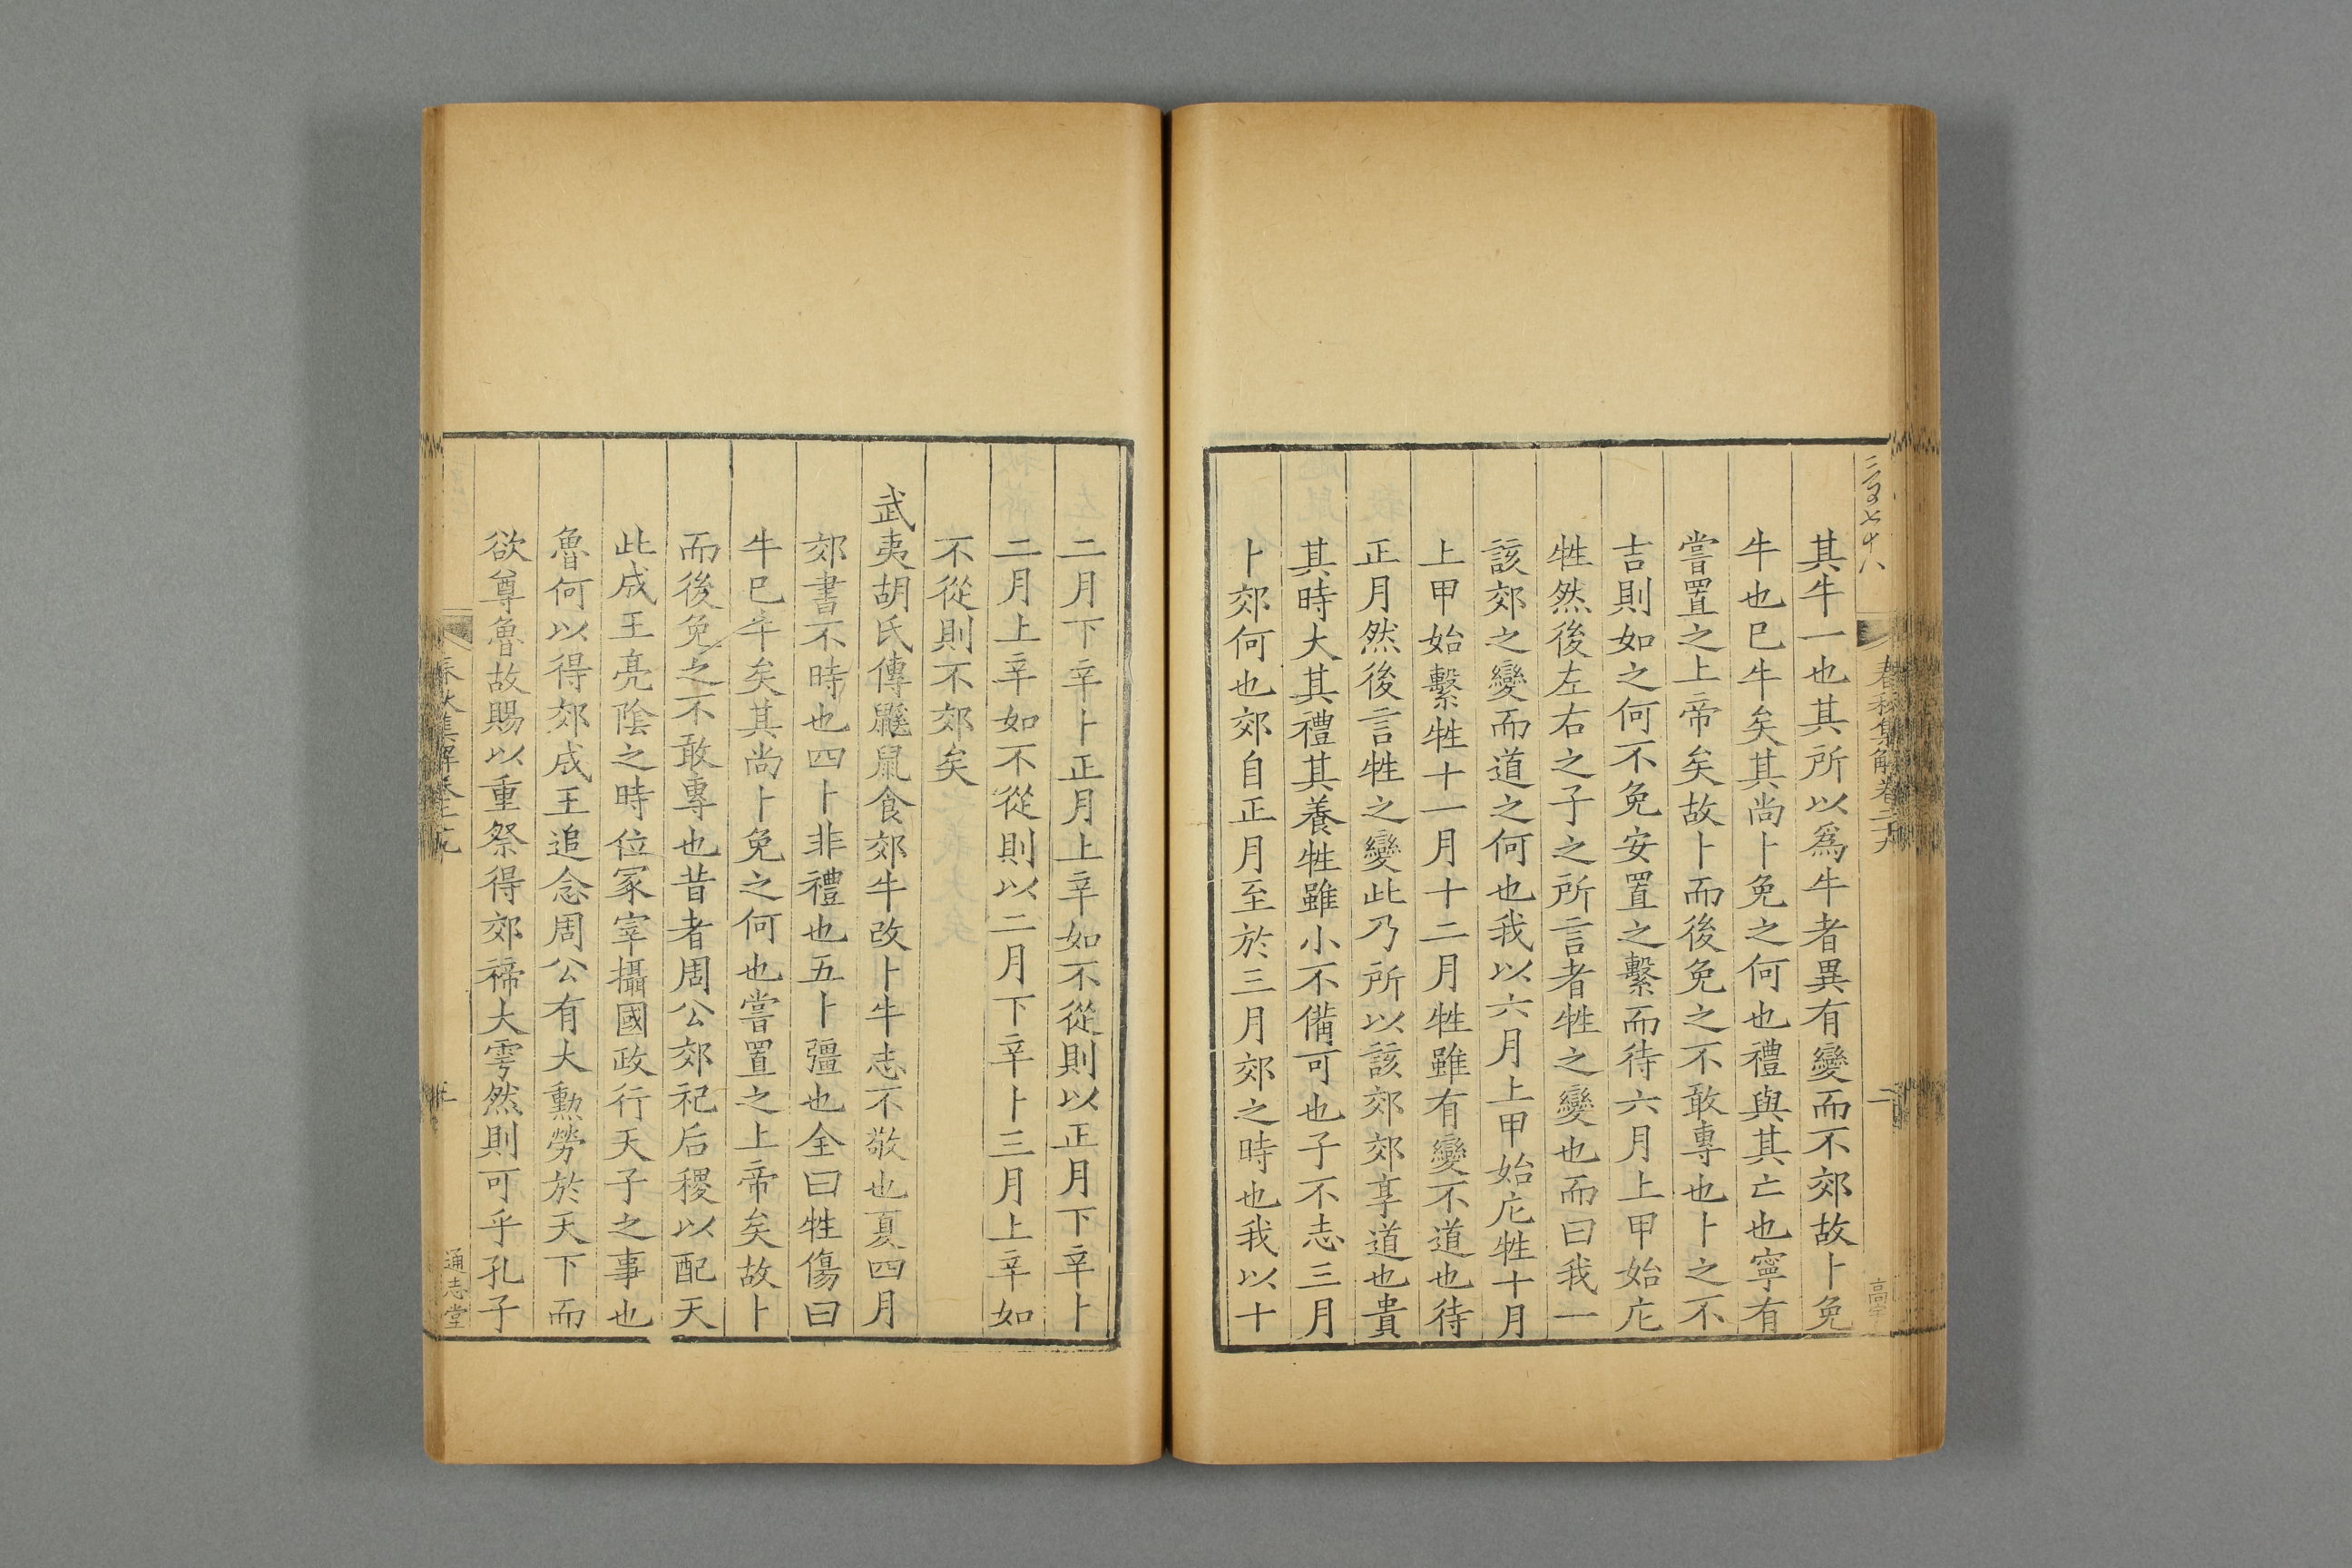 其牛一也其所以爲牛者異有變而不郊故卜免
牛也巳牛矣其尚卜免之何也禮與其亡也寧有
嘗置之上帝矣故卜而後免之不敢專也卜之不
吉則如之何不免安置之繫而待六月上甲始庀
牲然後左右之子之所言者牲之變也而曰我一
該郊之變而道之何也我以六月上甲始庀牲十月
上甲始繫牲十一月十二月牲雖有變不道也待
正月然後言牲之變此乃所以該郊郊享道也貴
其時大其禮其養牲雖小不備可也子不志三月
卜郊何也郊自正月至於三月郊之時也我以十
二月下辛卜正月上辛如不從則以正月下辛卜
二月上辛如不從則以二月下辛卜三月上辛如
不從則不郊矣
武夷胡氏傳鼷鼠食郊牛改卜牛志不敬也夏四月
郊書不時也四卜非禮也五卜彊也全曰牲傷曰
牛巳牛矣其尚卜免之何也嘗置之上帝矣故卜
而後免之不敢專也昔者周公郊祀后稷以配天
此成王亮陰之時位冢宰攝國政行天子之事也
魯何以得郊成王追念周公有大勲勞於天下而
欲尊魯故賜以重祭得郊禘大雩然則可乎孔子
通志堂